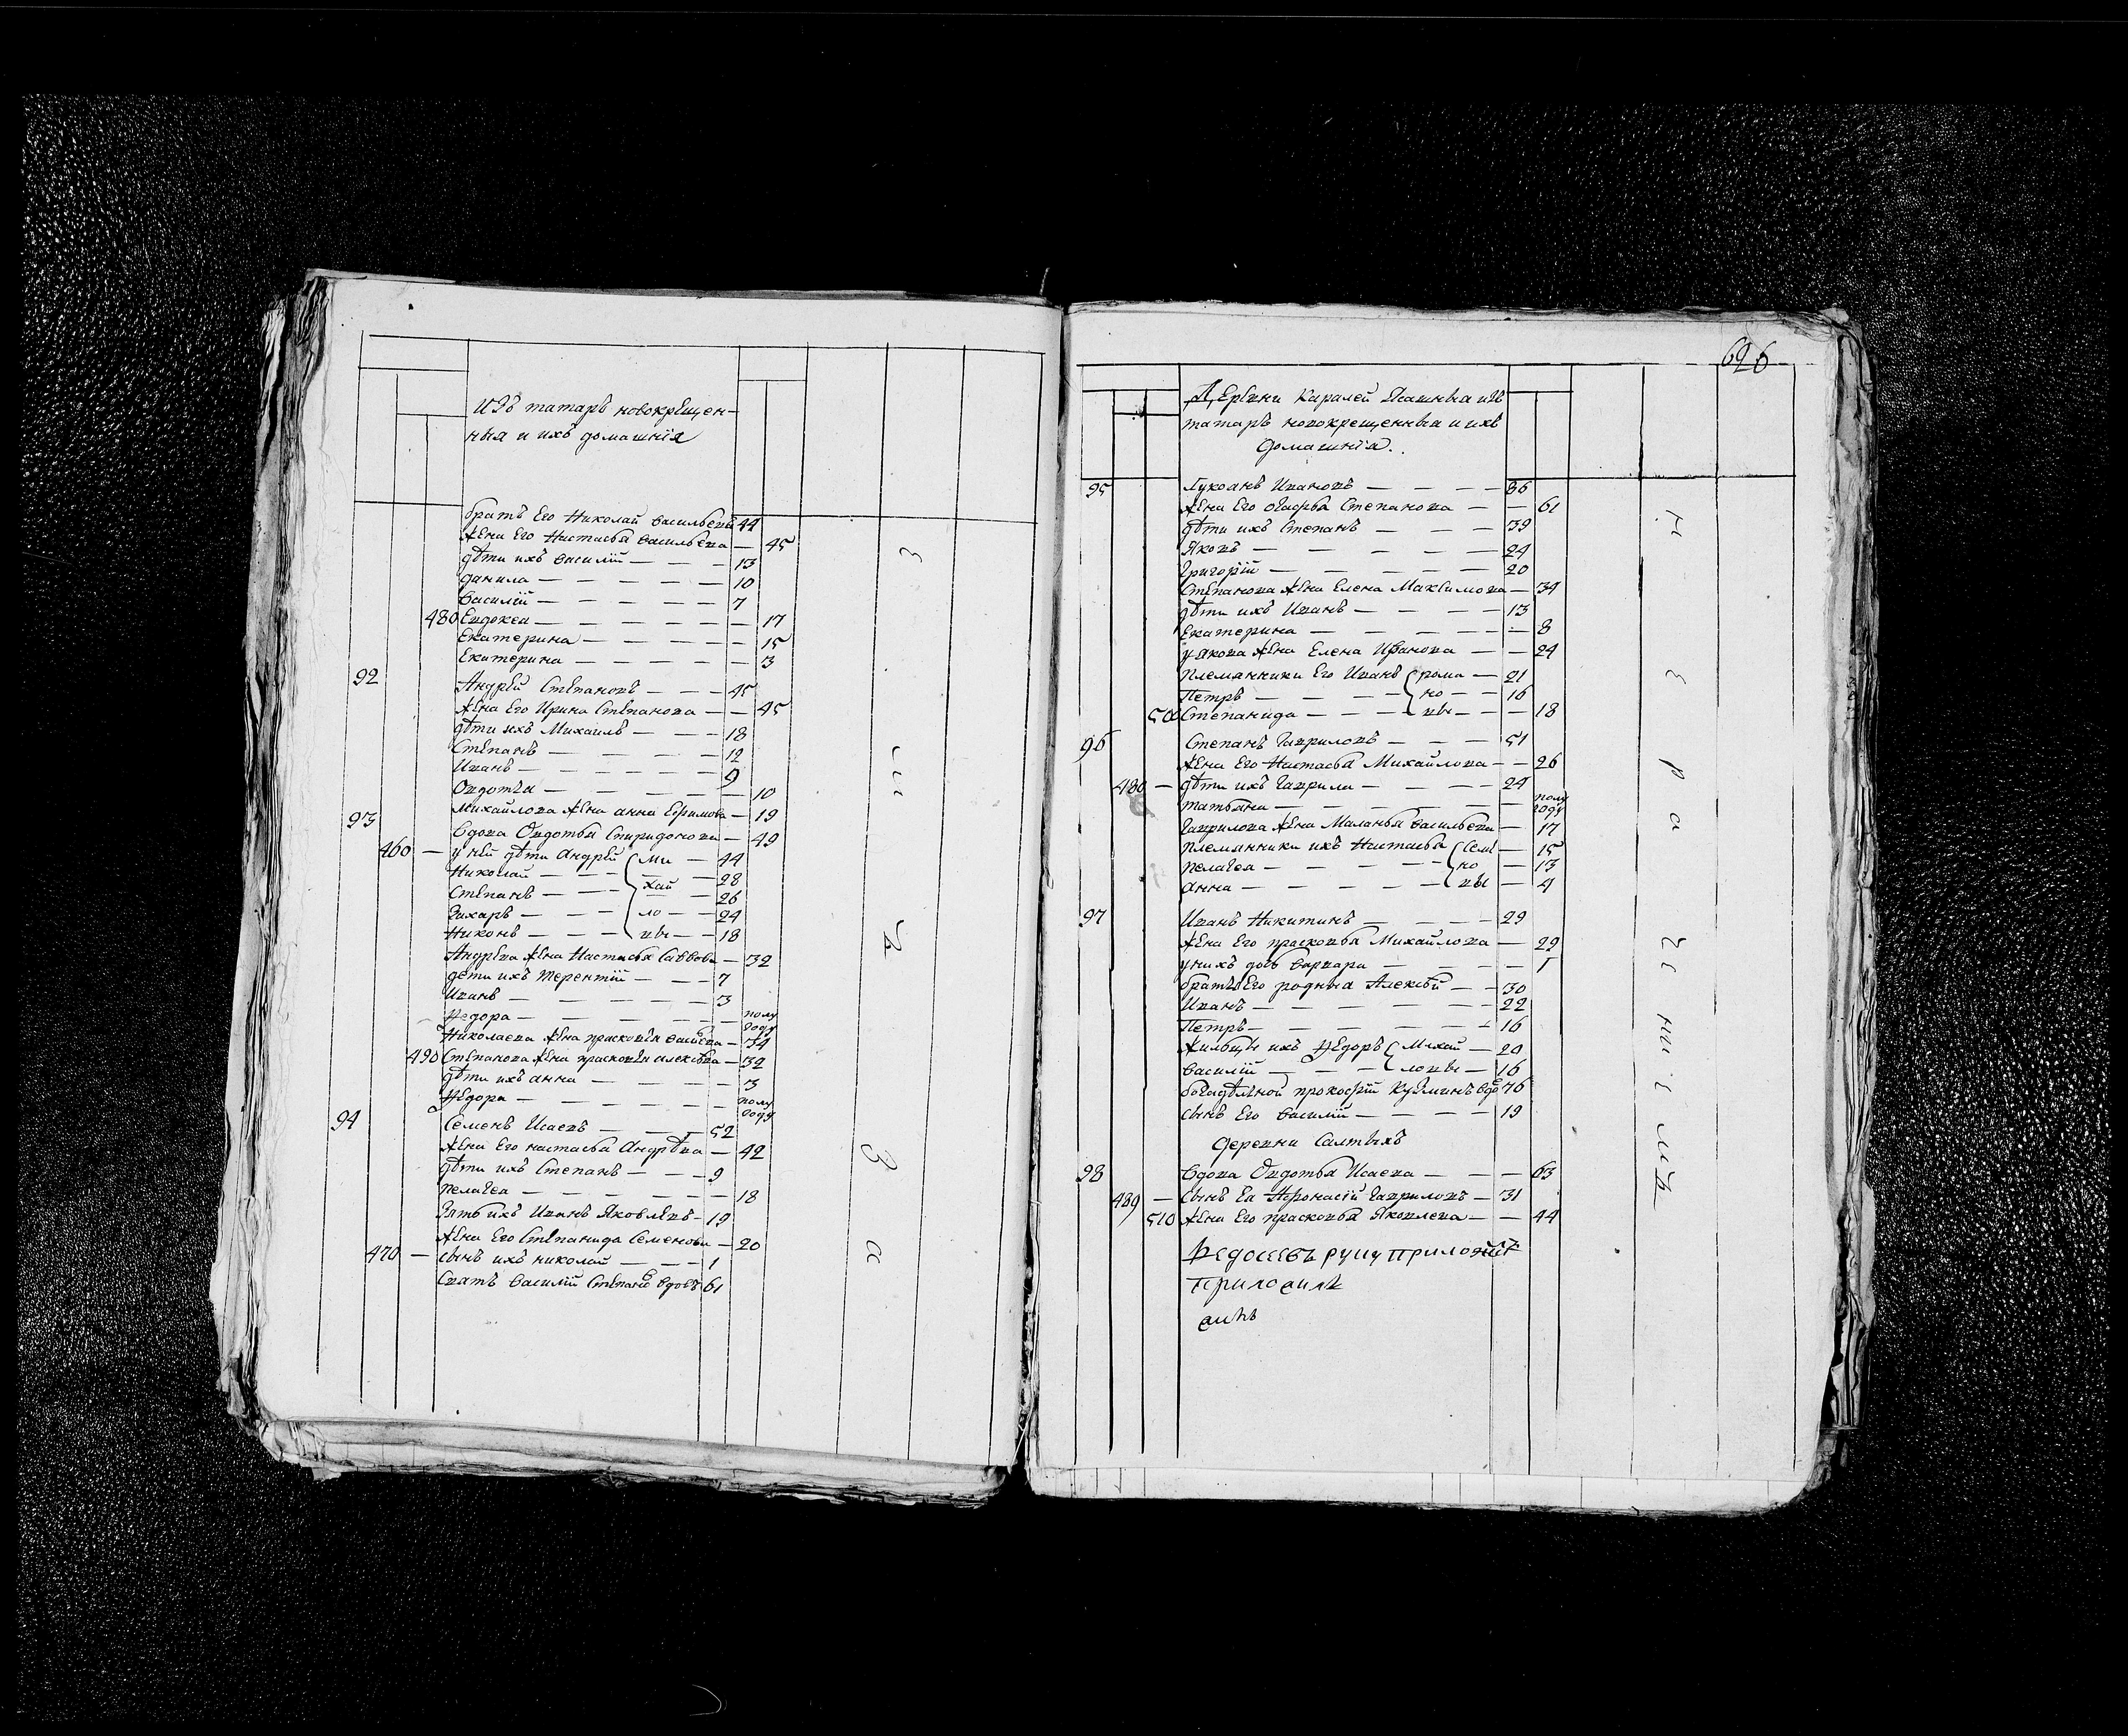 изъ татаръ новокрещен-
ныя и ихъ домашнїя
братъ Его Николай васильевъ 44
жена Его Настасья васильева — 45
дѣти ихъ василїй — 13
данила — 10
василїй — 7
480 Евдокея — 17
Екатерина — 15
Екатерина — 3
92 Андрей Степановъ — 45
жена Его Ирина Степанова — 45
дѣти ихъ Михаилъ — 18
Степанъ — 12
Иванъ — 9
Овдотья — 10
Михайлова жена анна Ефимова — 19
93 вдова Овдотья Спиридонова — 49
460 — у ней дѣти андрей ми — 44
Николай — 28
Степанъ — хай — 26
Захаръ — ло — 24
Никонъ — вы — 18
Андрева жена Настасья Саввова — 32
дети ихъ терентїй — 7
Иванъ — 3
Федора — полу году
Николаева жена прасковья — 34
490 Степанова жена прасковья алексева — 32
дѣти ихъ анна — 3
Федора — полу году
94 Семенъ Исаевъ — 52
жена Его настасья Андрѣва — 42
дѣти ихъ Степанъ — 9
пелагея — 18
зять ихъ Иванъ Яковлевъ — 19
жена Его Степанида Семенова — 20
470 — сынъ ихъ николай — 1
сватъ василїй вдовъ 61
Е
ш
а
626
Деревни Каралей Пашныа изъ
татаръ новокрещенныа и ихъ
домашнїа.
95 Лукоанъ Ивановъ — 86
жена Его агафья Степанова — 61
дѣти ихъ Степанъ — 39
Яковъ — 24
Григорїй — 20
Степанова жена Елена Максимова — 34
дѣти ихъ Иванъ — 13
Екатерина — 8
у якова жена Елена Иванова — 24
племянники Его Иванъ рома — 21
Петръ — но — 16
500 Степанида — вы — 18
96 Степанъ Гавриловъ — 51
жена Его Настасья Михайлова — 26
480 — дѣти ихъ Гаврила — 24
татьяна — полу году
Гаврилова жена Маланья васильева — 17
племянники ихъ Настасья Семе — 15
пелагея — но — 13
анна — вы — 4
97 Иванъ Никитинъ — 29
жена Его прасковья Михайлова — 29
у нихъ дочь варвара — 1
братья Его родныа Алексѣй — 30
Иванъ — 22
Петръ — 16
жильцы ихъ Федоръ Михай — 20
василїй — ловы — 16
богадѣльной прокофїй Кузминъ вдо 76
сынъ Его василїй — 19
деревни Салтыхъ
98 вдова Овдотья Исаева — 63
489 — сынъ Еа Афонасїй Гавриловъ — 31
510 жена Его прасковья Яковлева — 44
Федосеевъ руцу приложит
приложилъ
Е
р
а